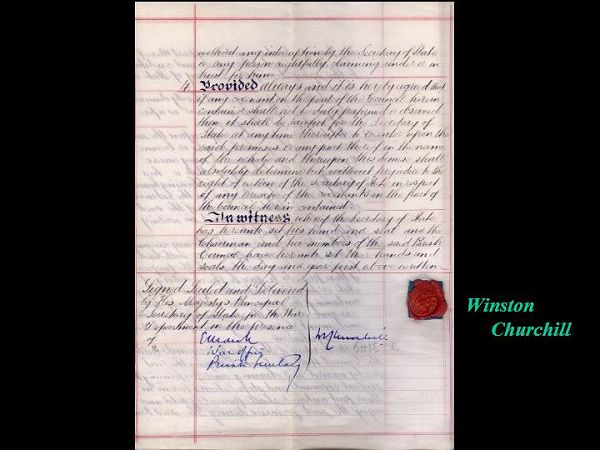 without any interruption by the Secretary of State
or any person rightfully claiming under or in
trust for him
4 Provided always and it is hereby agreed that
if any covenant on the part of the Council herein
contained shall not be duly performed or observed
then it shall be lawful for the Secretary of
State at any time thereafter to re enter upon the
said premises or any part thereof in the name
of the whole and thereupon this demise shall
absolutely determine but without prejudice to the
right of action of the Secretary of State in respect
of any breach of the covenants on the part of
the Council herein contained
In witness whereof the Secretary of State
has hereunto set his hand and seal and the
Chairman and two members of the said Parish
Council have hereunto set their hands and
seals the day and year first above written
Signed Sealed and Delivered
by His Majesty's Principal
Secretary of State for the War
Department in the presence
of
EMarsh
War Office
Private Secretary
WSChurchill
Winston
Churchill